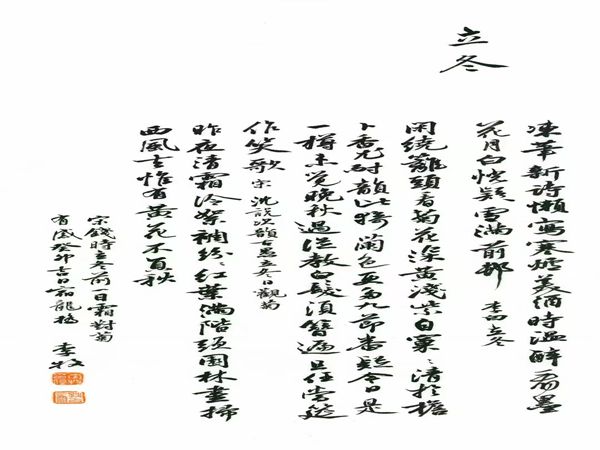 立冬
凍筆新詩懶寫寒爐美酒時溫醉看墨
花月白恍疑雪滿前邨 李白立冬
閑繞籬頭看菊花深黃淺紫自窠〻清於檐
卜香尤耐韻比猗蘭色更多九節番疑今日是
一樽未覺晚秋過從教白髮須簪遍且任當筵
作笑歌 宋沈說次韻古愚立冬日觀菊
昨夜清霜冷絮裯紛紅葉滿階頭園林盡掃
西風去惟有黃花不負秋
宋錢時立冬前一日霜對菊
有感癸卯吉日 李牧